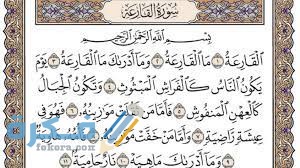 سُورَةُ القَارِعَةِ
بِسْمِ اللَّهِ الرَّحْمَٰنِ الرَّحِيمِ
الْقَارِعَةُ ١ مَا الْقَارِعَةُ ٢ وَمَا أَدْرَاكَ مَا الْقَارِعَةُ ٣ يَوْمَ
يَكُونُ النَّاسُ كَالْفَرَاشِ الْمَبْثُوثِ ٤ وَتَكُونُ الْجِبَالُ
كَالْعِهْنِ الْمَنفُوشِ ٥ فَأَمَّا مَن ثَقُلَتْ مَوَازِينُهُ ٦ فَهُوَ فِي
عِيشَةٍ رَّاضِيَةٍ ٧ وَأَمَّا مَنْ خَفَّتْ
وَمَا أَدْرَاكَ مَا هِيَهْ ١٠ نَارٌ حَامِيَةٌ ١١
فكرة
fekera.com